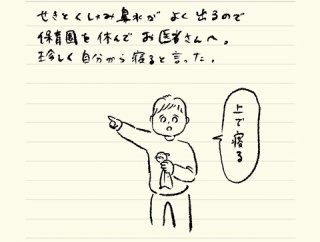 せきとくしゃみ鼻水が よく出るので
保育園を休んで お医者さんへ。
珍しく自分から寝ると言った。
上で寝る